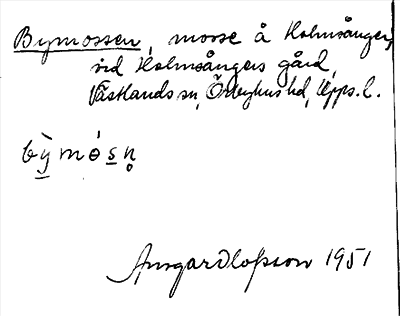 Bymossen, mosse å Holmsånger,
vid Holmsångers gård,
Västlands sn, Örbyhus hd, Upps. l.
bỳmósn̥
Ansgar Olofsson 1951